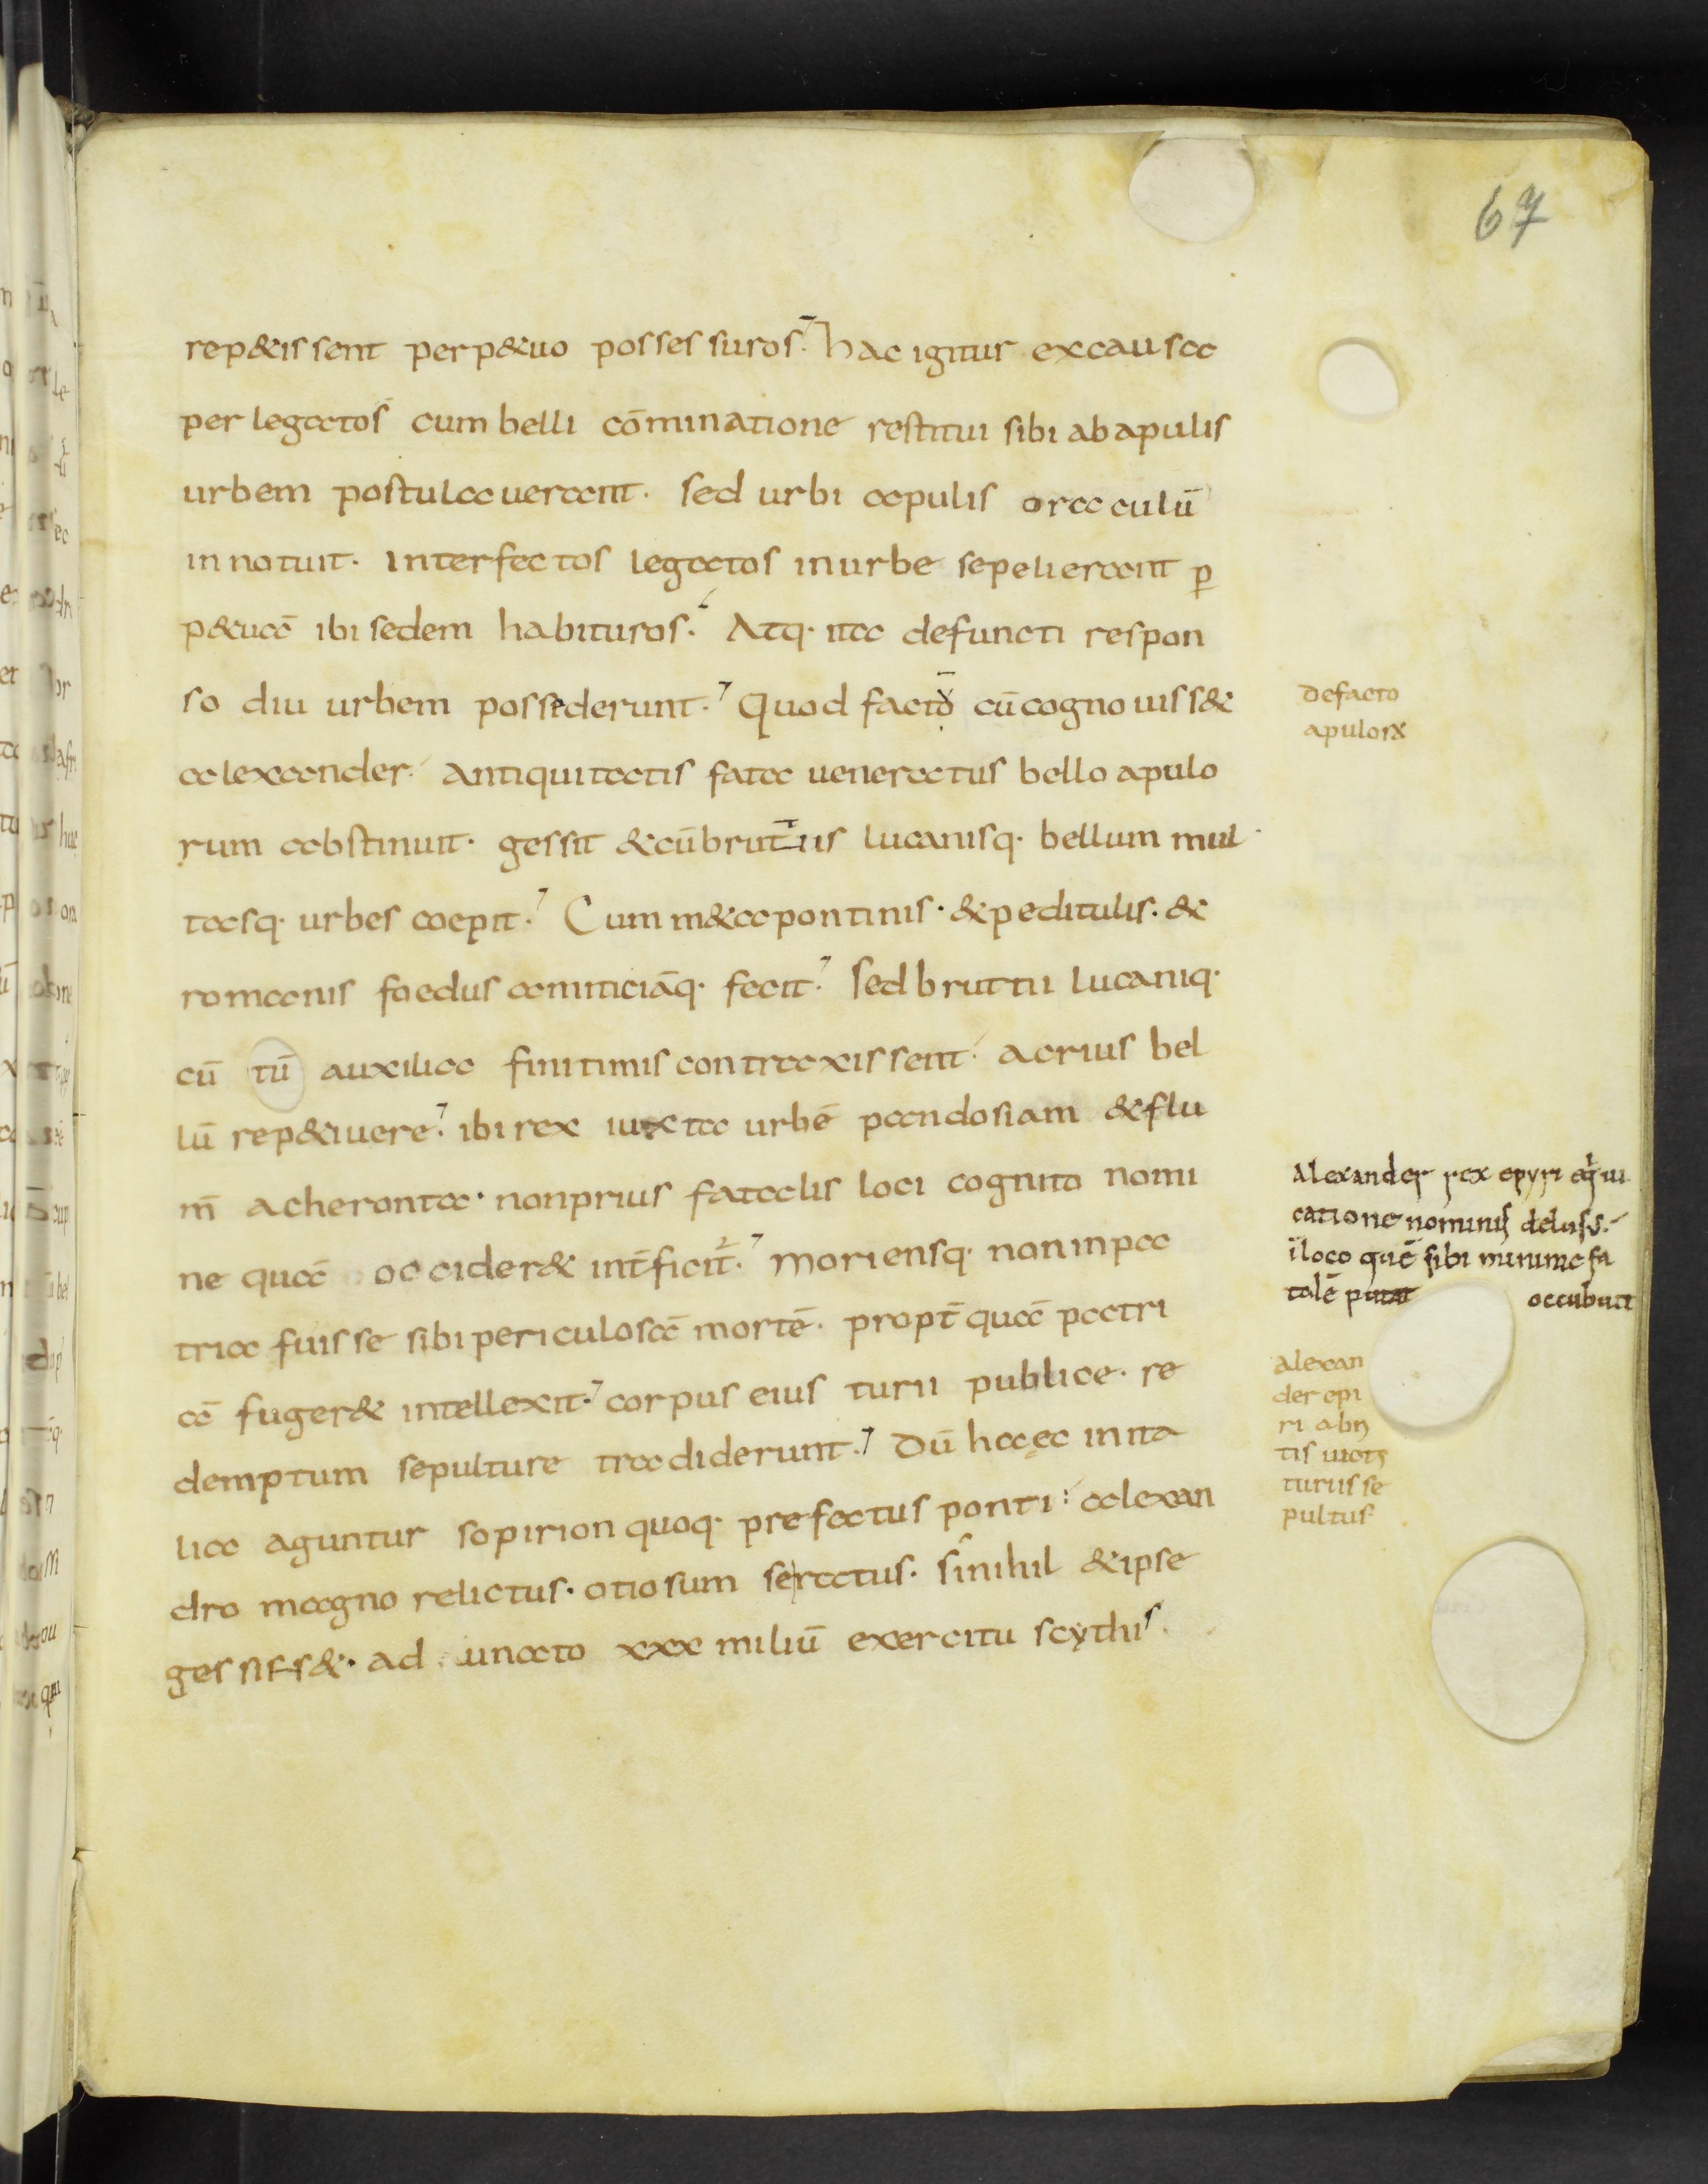 67
rep&issent perp&uo possessuros. hac igitur excausa
per legatos cum belli cōminatione restitui sibi abapulis
urbem postulauerant. sed urbi apulis oraculū
innotuit. Interfectos legatos inurbe sepelierant p̲
p&uā ibi sedem habituros. Atq· ita defuncti respon
so diu urbem possederunt. Quod factō cūcognouiss&
alexander. antiquitatis fata ueneratus bello apulo
rum abstinuit. gessit &cūbruttiis lucanisq· bellum mul
tasq· urbes coepit. Cum m&apontinis. &peditulis. &
romanis foedus amiticiāq· fecit. sed bruttii lucaniq·
cū tū auxilia finitimis contraxissent. acrius bel
lū rep&iuere. ibi rex iuxta urbē pandosiam &flu
m̄ acheronta. nonprius fatalis loci cognito nomi
ne quā occider& int̄ficit̄. moriensq· non inpa
tria fuisse sibi periculosā mortē. propt̄ quā patri
ā fuger& intellexit. corpus eius turii publice. re
demptum sepulture tradiderunt. Dū haec inita
lia aguntur sopirion quoq· prefectus ponti: alexan
dro magno relictus. otiosum seratus. si nihil &ipse
gessiss&. ad unato xxx miliū exercitu scythis.
Defacto
apulorꝝ
Alexander rex epyri eq̇ui
catione nominis delusꝰ.
ī loco quē sibi minime fa
talē putat occubuit
alexan
der epi
ri abn
tis uicts
turiis se
pultus